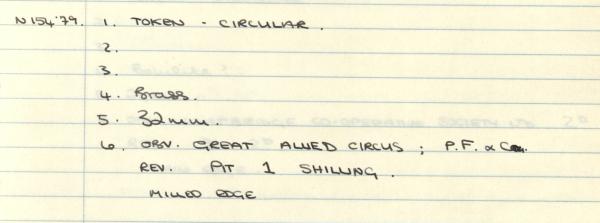 N154'79. 1. TOKEN - CIRCULAR.
2.
3.
4. Brass.
5. 32mm.
6. OBV. GREAT ALLIED CIRCUS; P.F. & Co.
REV. PIT 1 SHILLING.
MILLED EDGE